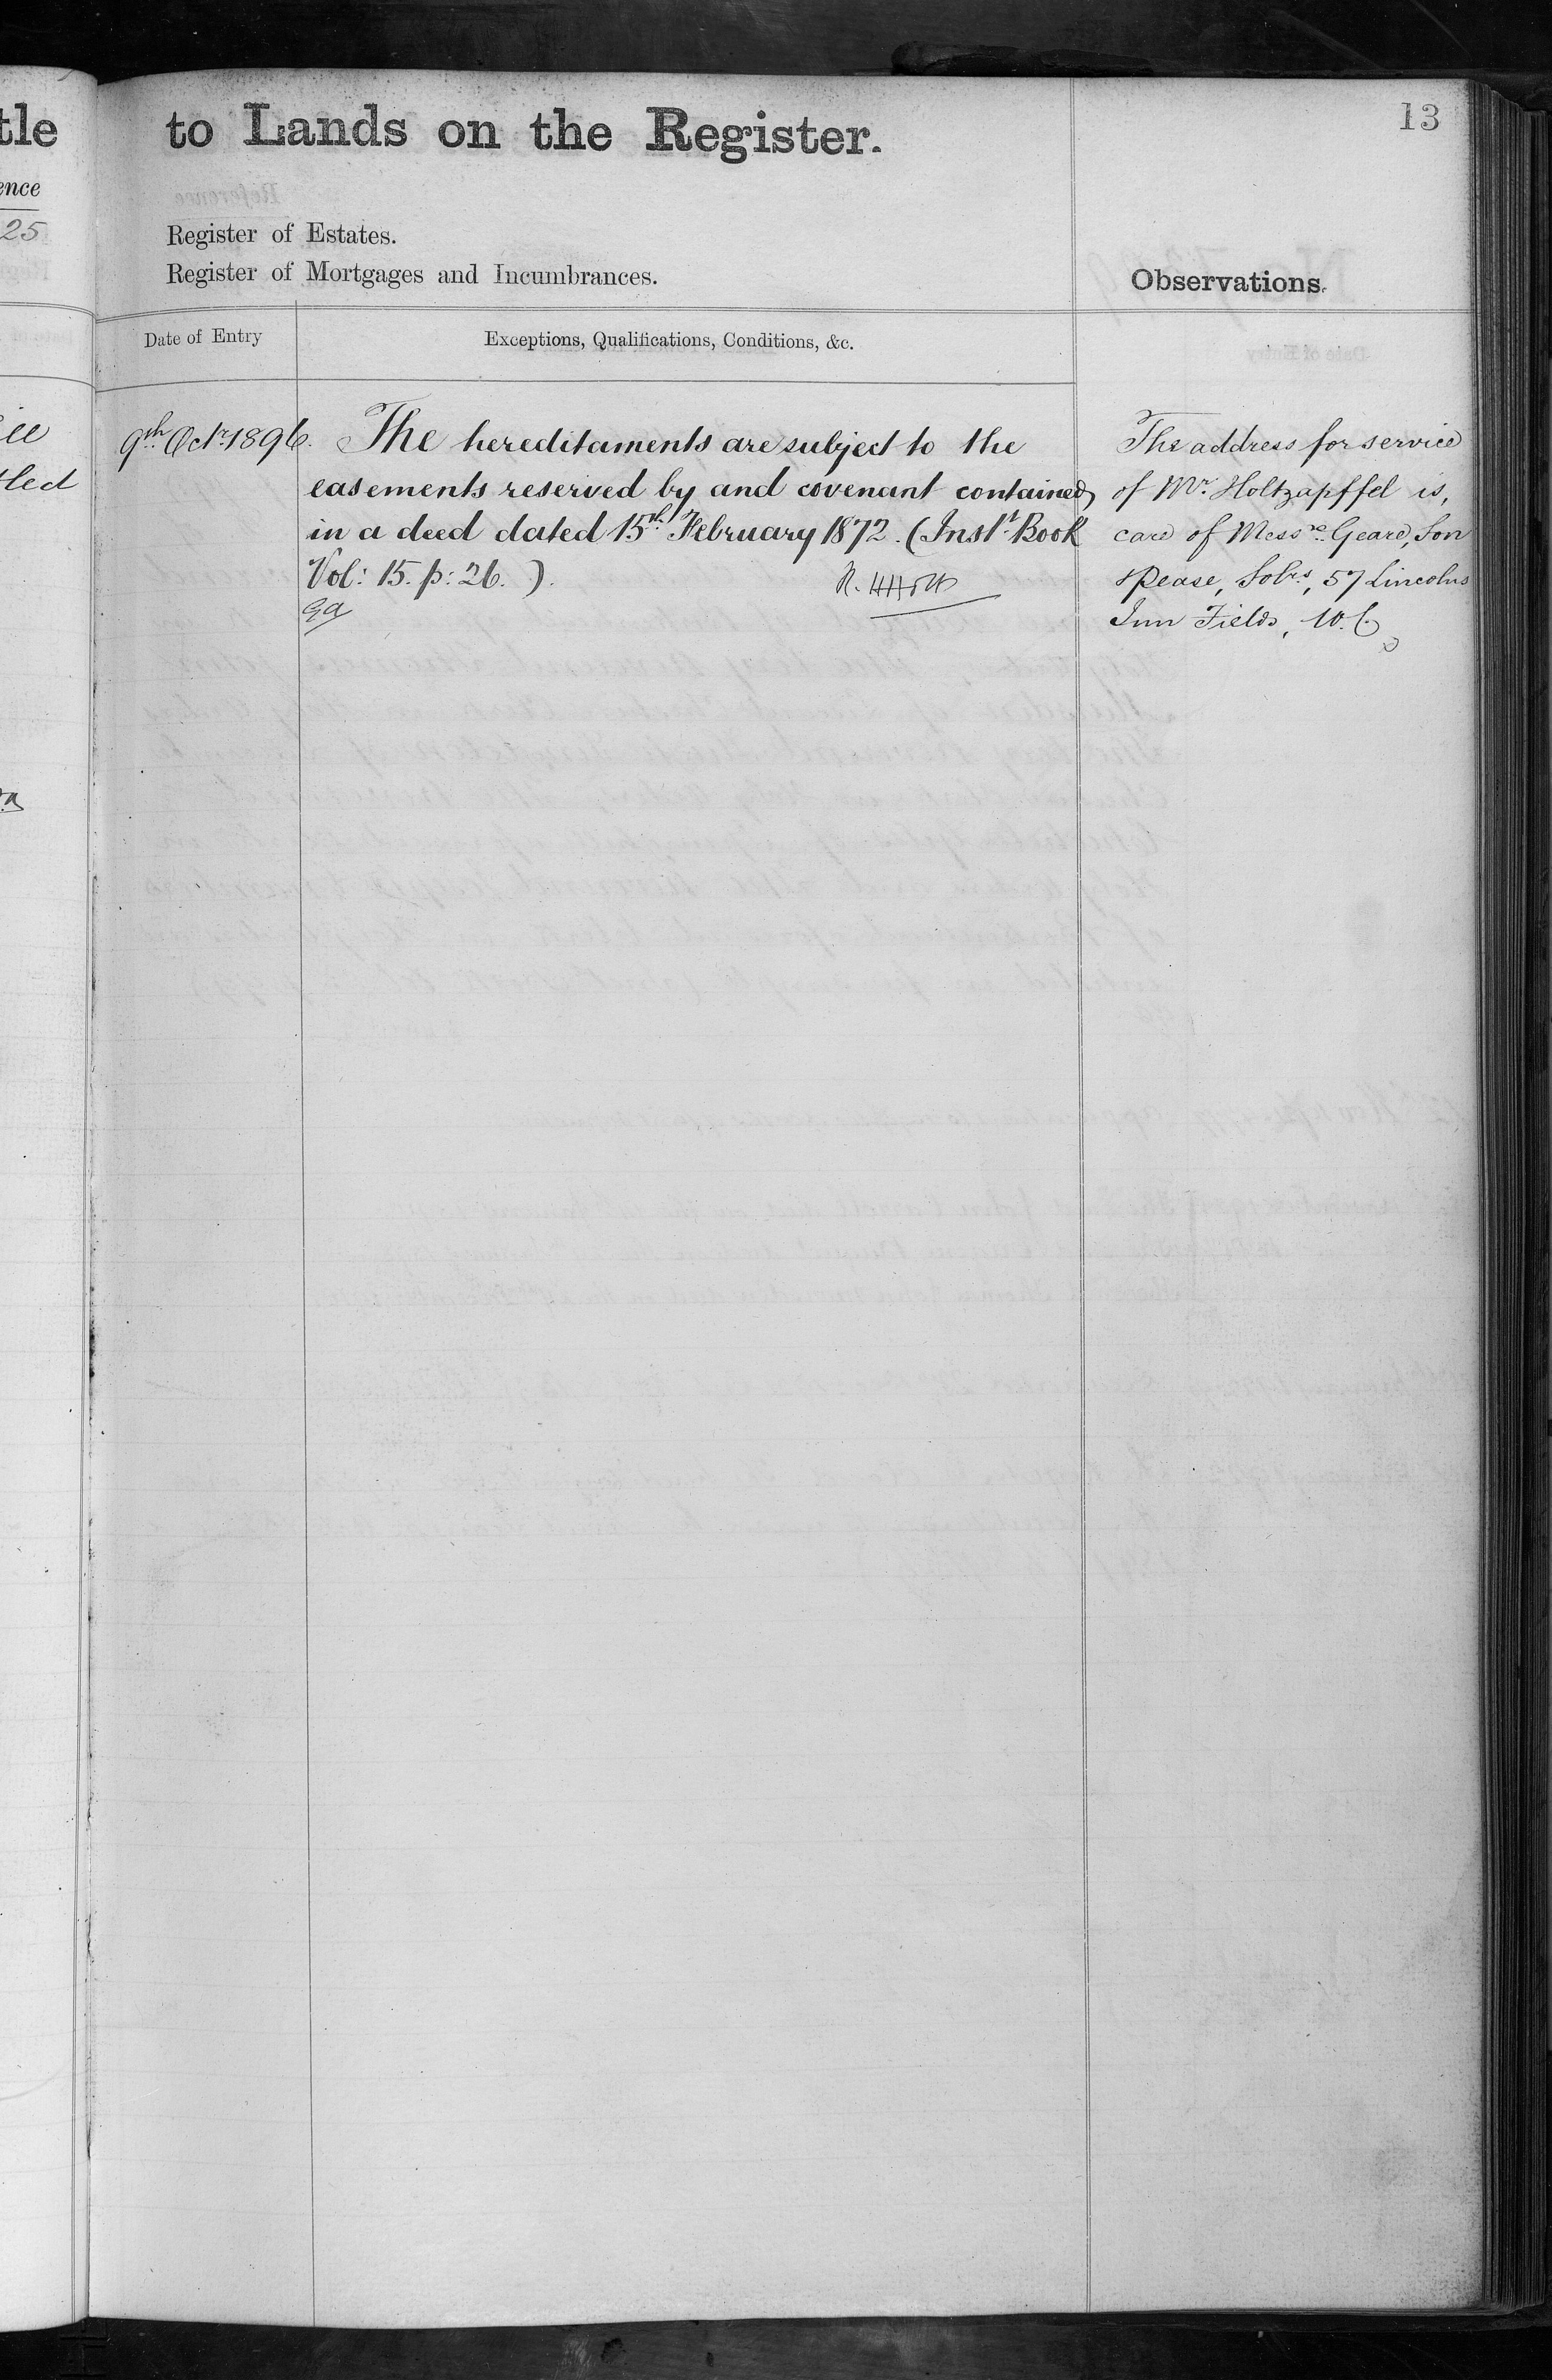 tle to Lands on the Register. 13
ence
25
Register of Estates.
Register of Mortgages and Incumbrances.
Observations.
Date of Entry
Exceptions, Qualifications, Conditions, &c.
9th Octr 1896.
The hereditaments are subject to the
easements reserved by and covenant contained
in a deed dated 15th February 1872. (Inst Book
Vol: 15. p: 26. ).
The address for service
of Mr. Holtzapffel is,
care of Messrs. Geare, Son
& Pease, Solrs, 57 Lincolns
Inn Fields, W.C.